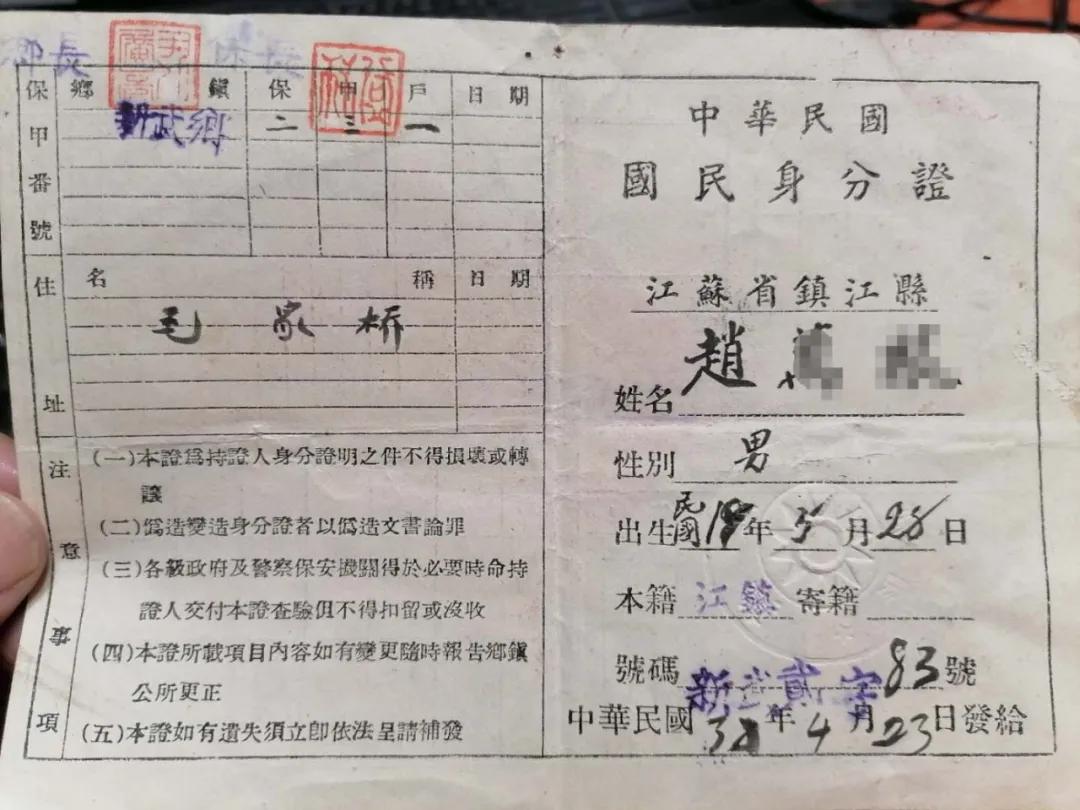 鄉長 保長
保甲番號
鄉 鎮 保 甲 戶 日期
新武鄉 二 三 一
住址
名稱 日期
毛家桥
注意事項
(一)本證爲持證人身分證明之件不得損壞或轉
讓
(二)僞造變造身分證者以僞造文書論罪
(三)各級政府及警察保安機關得於必要時命持
證人交付本證查驗但不得扣留或沒收
(四)本證所載項目內容如有變更隨時報告鄉鎮
公所更正
(五)本證如有遺失須立卽依法呈請補發
中華民國
國民身分證
江蘇省鎮江縣
姓名 趙
性別 男
出生民國 年 月28日
本籍 江鎮 寄籍
號碼 新武貳字83號
中華民國 年4月23日發給